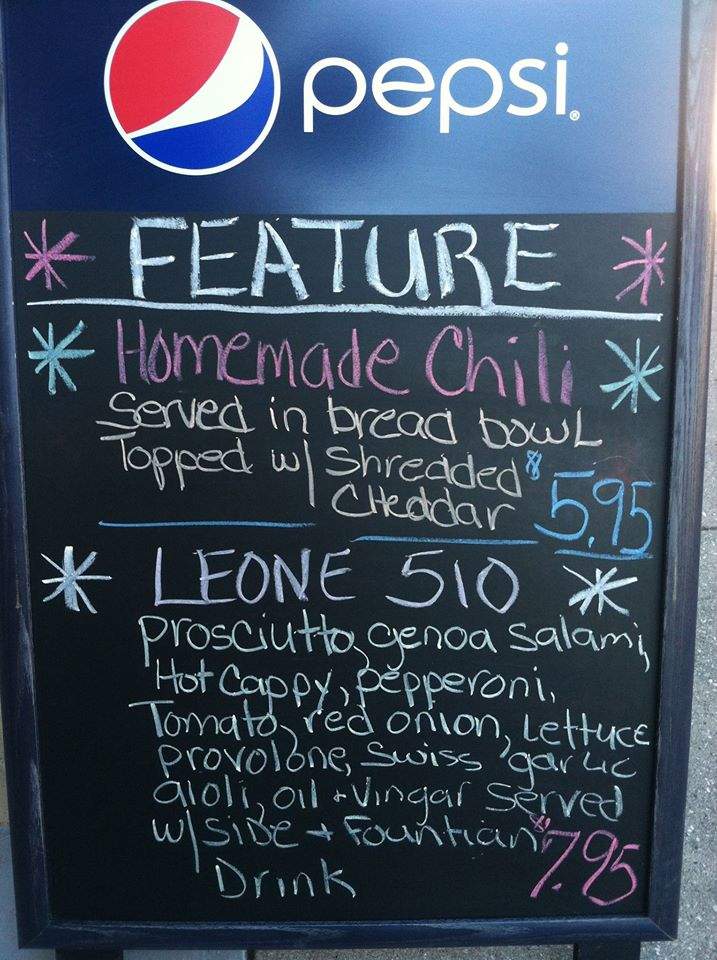 pepsi®
* FEATURE *
* Homemade Chili *
Served in bread bowl
Topped w/ Shreaded
Cheddar $5.95
* LEONE 510 *
prosciutto, genoa salami,
Hot Cappy, pepperoni,
Tomato, red onion, Lettuce
provolone, Swiss, garlic
aioli, oil + Vingar Served
w/ SiDe + Fountian
Drink $7.95